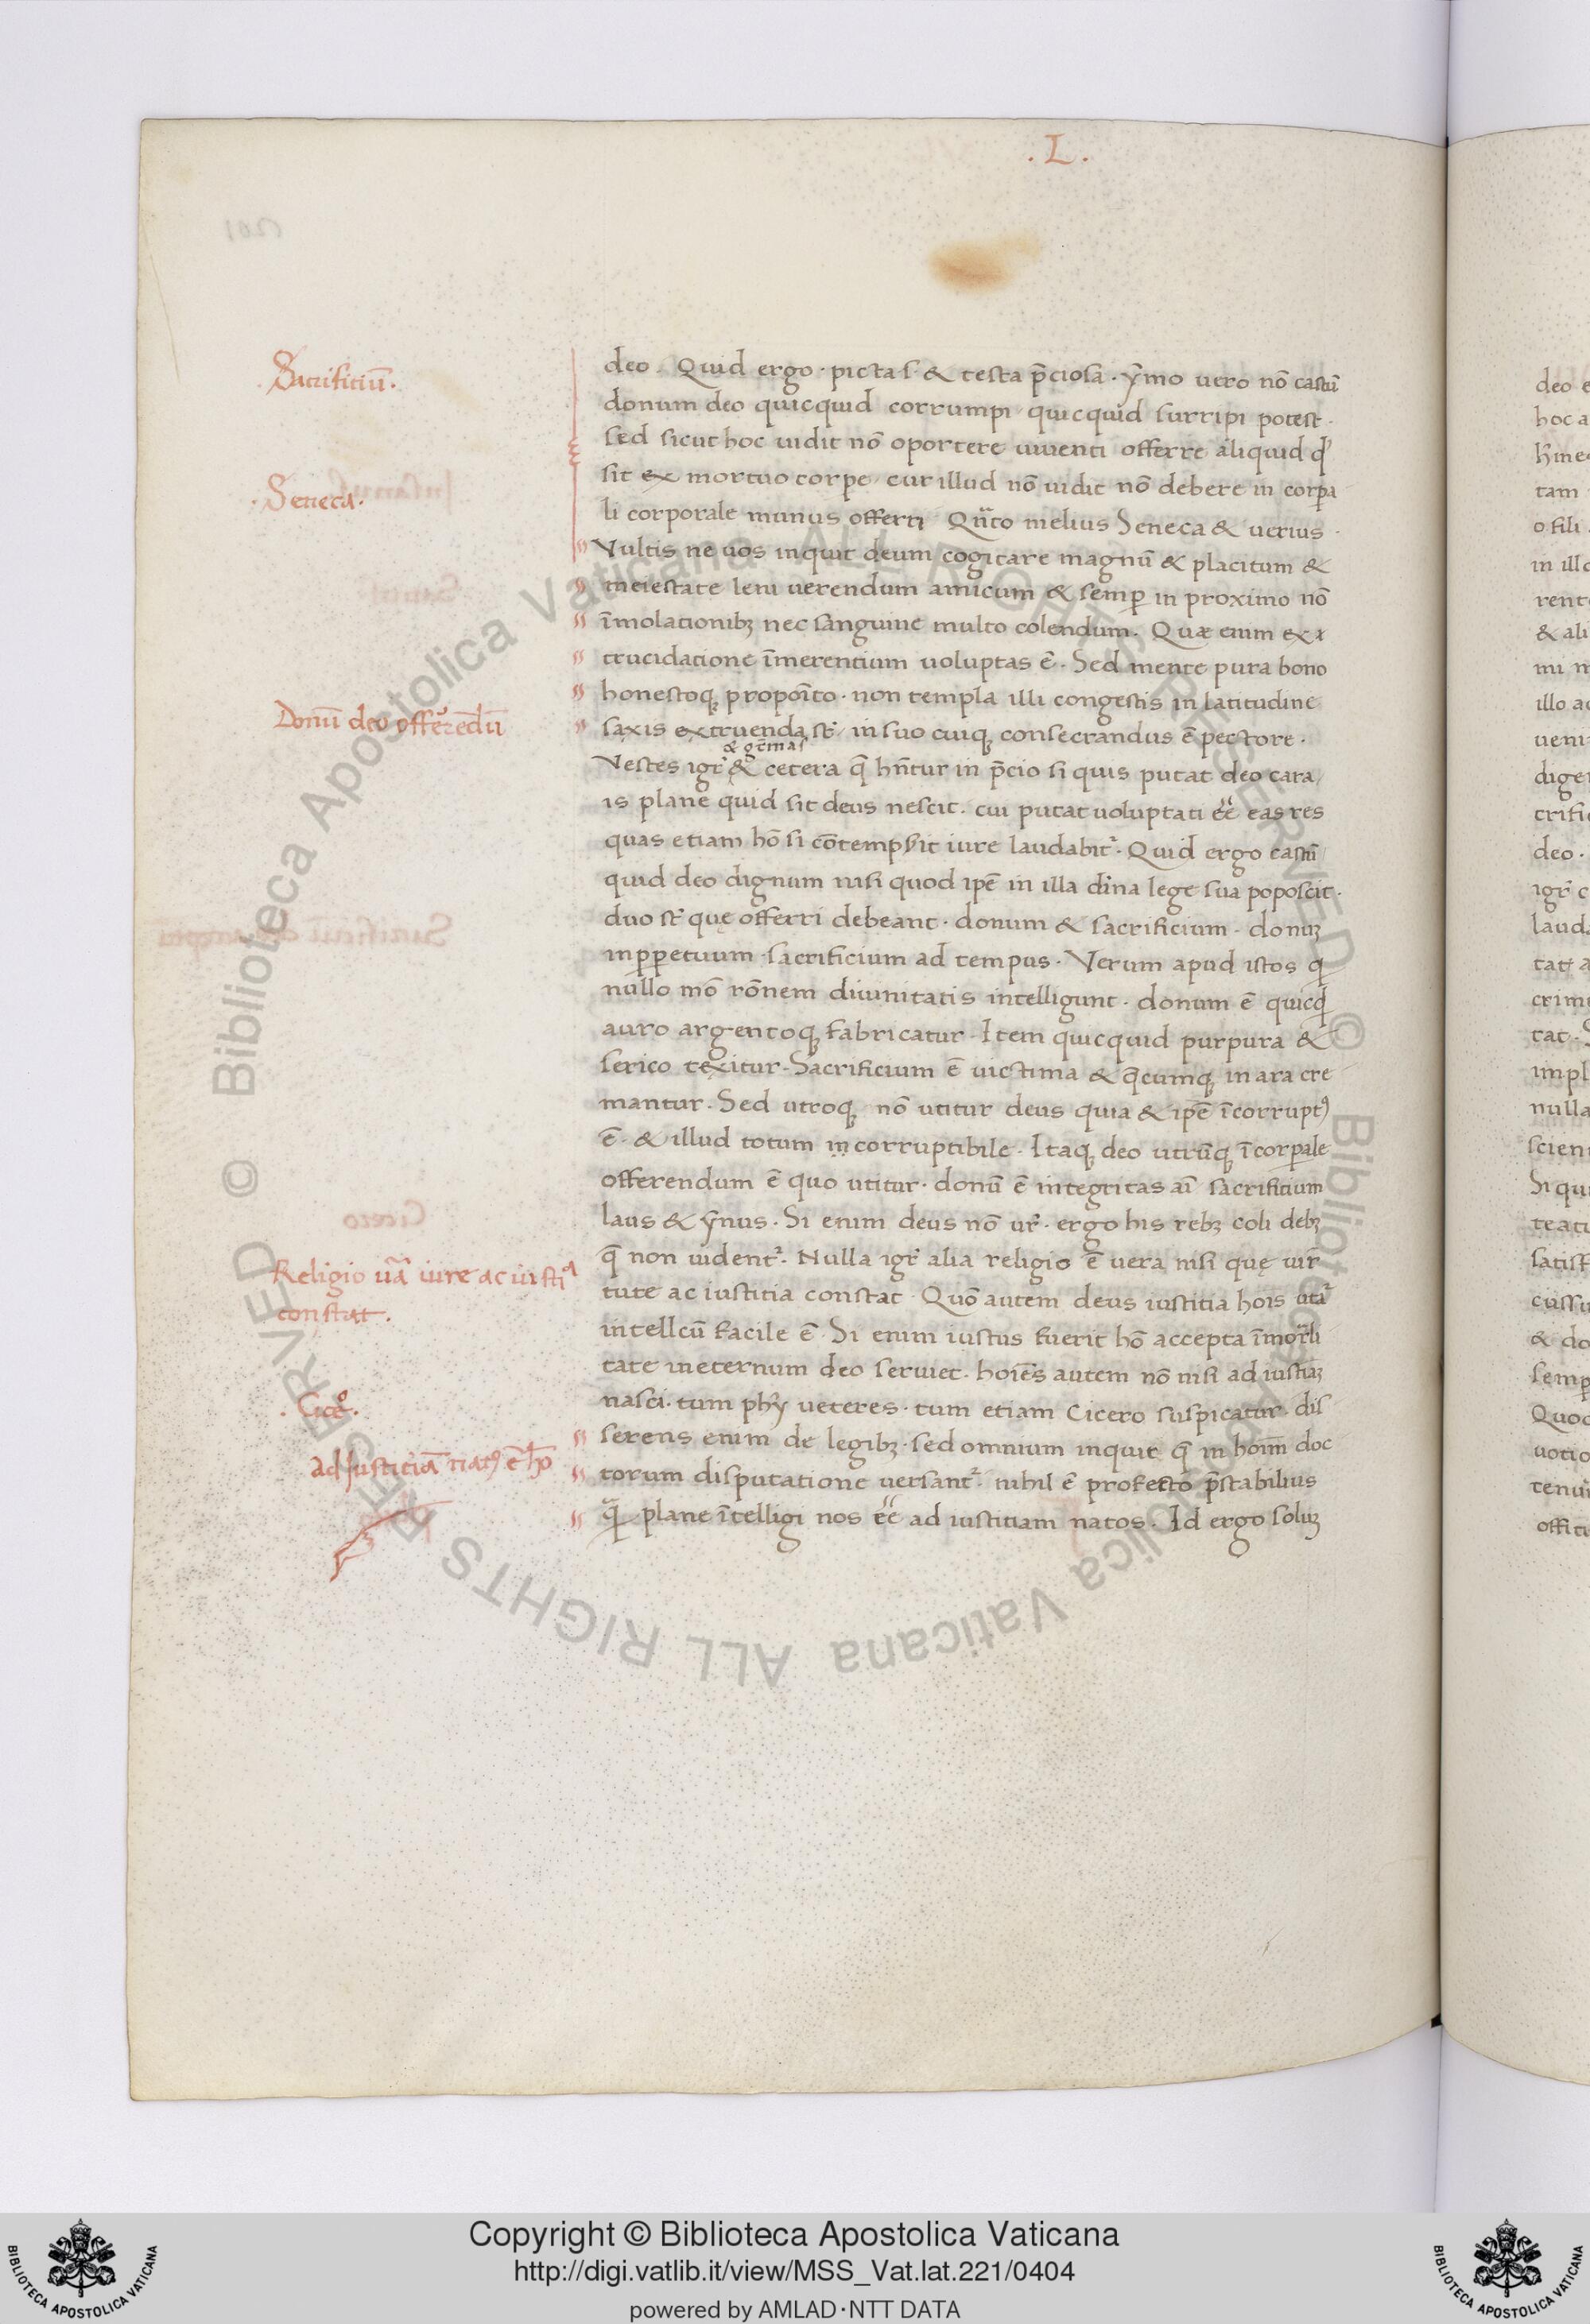 . L .
Sacrificiū.
.Seneca.
Donū deo offerēdū
Religio uā iure ac iusti
constat.
. Cicᵉº.
ad Justitiā natꝰ ē hō
deo. Quid ergo · picta s̄ & testa p̄ciosa · ȳmo uero nō castū
donum deo quicquid corrumpi quicquid surripi potest ·
sed sicut hoc uidit nō oportere uiuenti offerre aliquid qd̓
sit ex mortuo corpe / cur illud nō uidit nō debere in corpa
li corporale munus offerri Qūto melius Seneca & uerius ·
Vultis ne uos inquit deum cogitare magnū & placitum &
meiestate leni uerendum amicum & semꝑ in proximo nō
īmolationibꝫ nec sanguine multo colendum. Quæ enim ex
trucidatione īmerentium uoluptas ē. Sed mente pura bono
honestoqꝫ propoīto · non templa illi congestis in latitudine
saxis extruenda st̄ / in suo cuiqꝫ consecrandus ē pectore ·
& gēmas
Vestes igr̄ & cetera q̄ hn̄tur in p̄cio si quis putat deo cara /
is plane quid sit deus nescit. cui putat uoluptati ēē eas res
quas etiam hō si cōtempsit iure laudabit᷑. Quid ergo castū
quid deo dignum nisi quod ipē in illa dīna lege sua poposcit.
duo st̄ quę offerri debeant · donum & sacrificium · donuꝫ
inꝑpetuum · sacrificium ad tempus. Verum apud istos q
nullo mō rōnem diuinitatis intelligunt · donum ē quicqd̓
auro argentoqꝫ fabricatur. Item quicquid purpura &
serico texitur. Sacrificium ē uictima & q̄cumqꝫ in ara cre
mantur. Sed utroqꝫ nō utitur deus quia & ipē īcorruptꝰ
ē. & illud totum incorruptibile. Itaqꝫ deo utrūqꝫ īcorꝑale
offerendum ē quo utitur. donū ē integritas aī sacrificium
laus & ȳnus. Si enim deus nō ur̄. ergo his rebꝫ coli debꝫ
q̄ non uident᷑. Nulla igr̄ alia religio ē uera nisi quę uir
tute ac iustitia constat. Quō autem deus iustitia hoīs utat᷑
intellcū facile ē. Si enim iustus fuerit hō accepta īmorli
tate ineternum deo seruiet. hoīes autem nō nisi ad iustiāꝫ
nasci. tum phȳ ueteres · tum etiam Cicero suspicatur · dis
serens enim de legibꝫ · sed omnium inquit q̄ in hoīm doc
torum disputatione uersant᷑. nihil ē profecto p̄stabilius
q̄ plane ītelligi nos ēē ad iustitiam natos. Id ergo soluꝫ
Copyright © Biblioteca Apostolica Vaticana
http://digi.vatlib.it/view/MSS_Vat.lat.221/0404
powered by AMLAD·NTT DATA